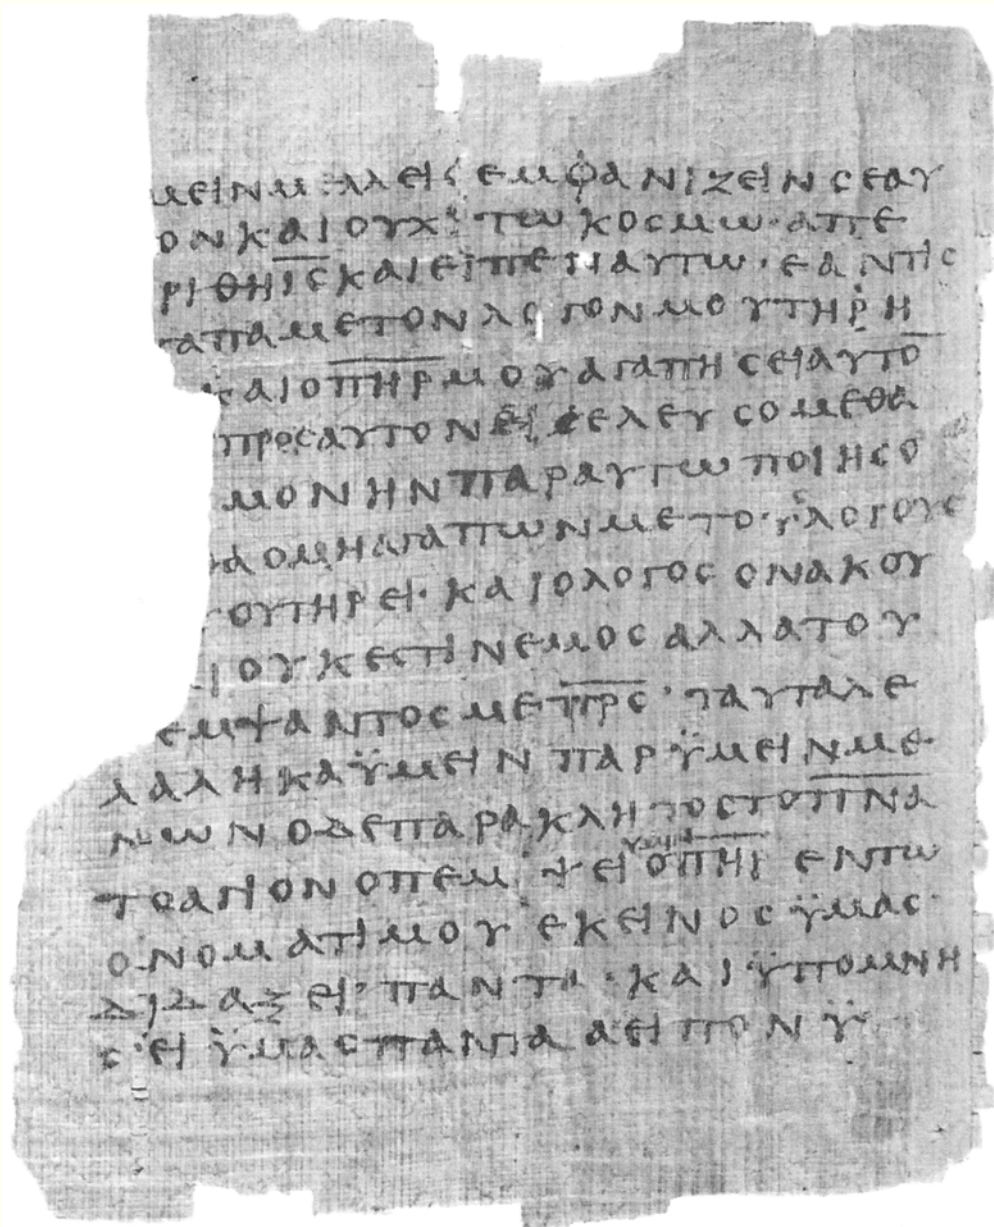 μεινμελλεις εμφανιζεινσεαυ
ονκαιουχι τωκοσμω·απε
ριθηι̅ς̅καιειπεναυτω·εαντις
γαπαμετονλογονμουτηρη
καιοπ̅η̅ρ̅μουαγαπησειαυτο̅
προσαυτον ελευσομεθα
μονηνπαραυτωποιησο
θαομηαγαπωνμετουσλογουσ
ουτηρει·καιολογοσονακου
ουκεστινεμοσαλλατου
εμψαντοσμεπ̅ρ̅ς̅·ταυταλε
λαληκαϋμεινπαρϋμεινμε
νωνοδεπαρακλητοστοπ̅ν̅α̅
τοαγιονοπεμψειοπ̅η̅ρ̅ εντω
ονοματιμουεκεινοσϋμασ·
διδαξει·παντα·καιϋπομνη
σειϋμασπαντααειπονϋ